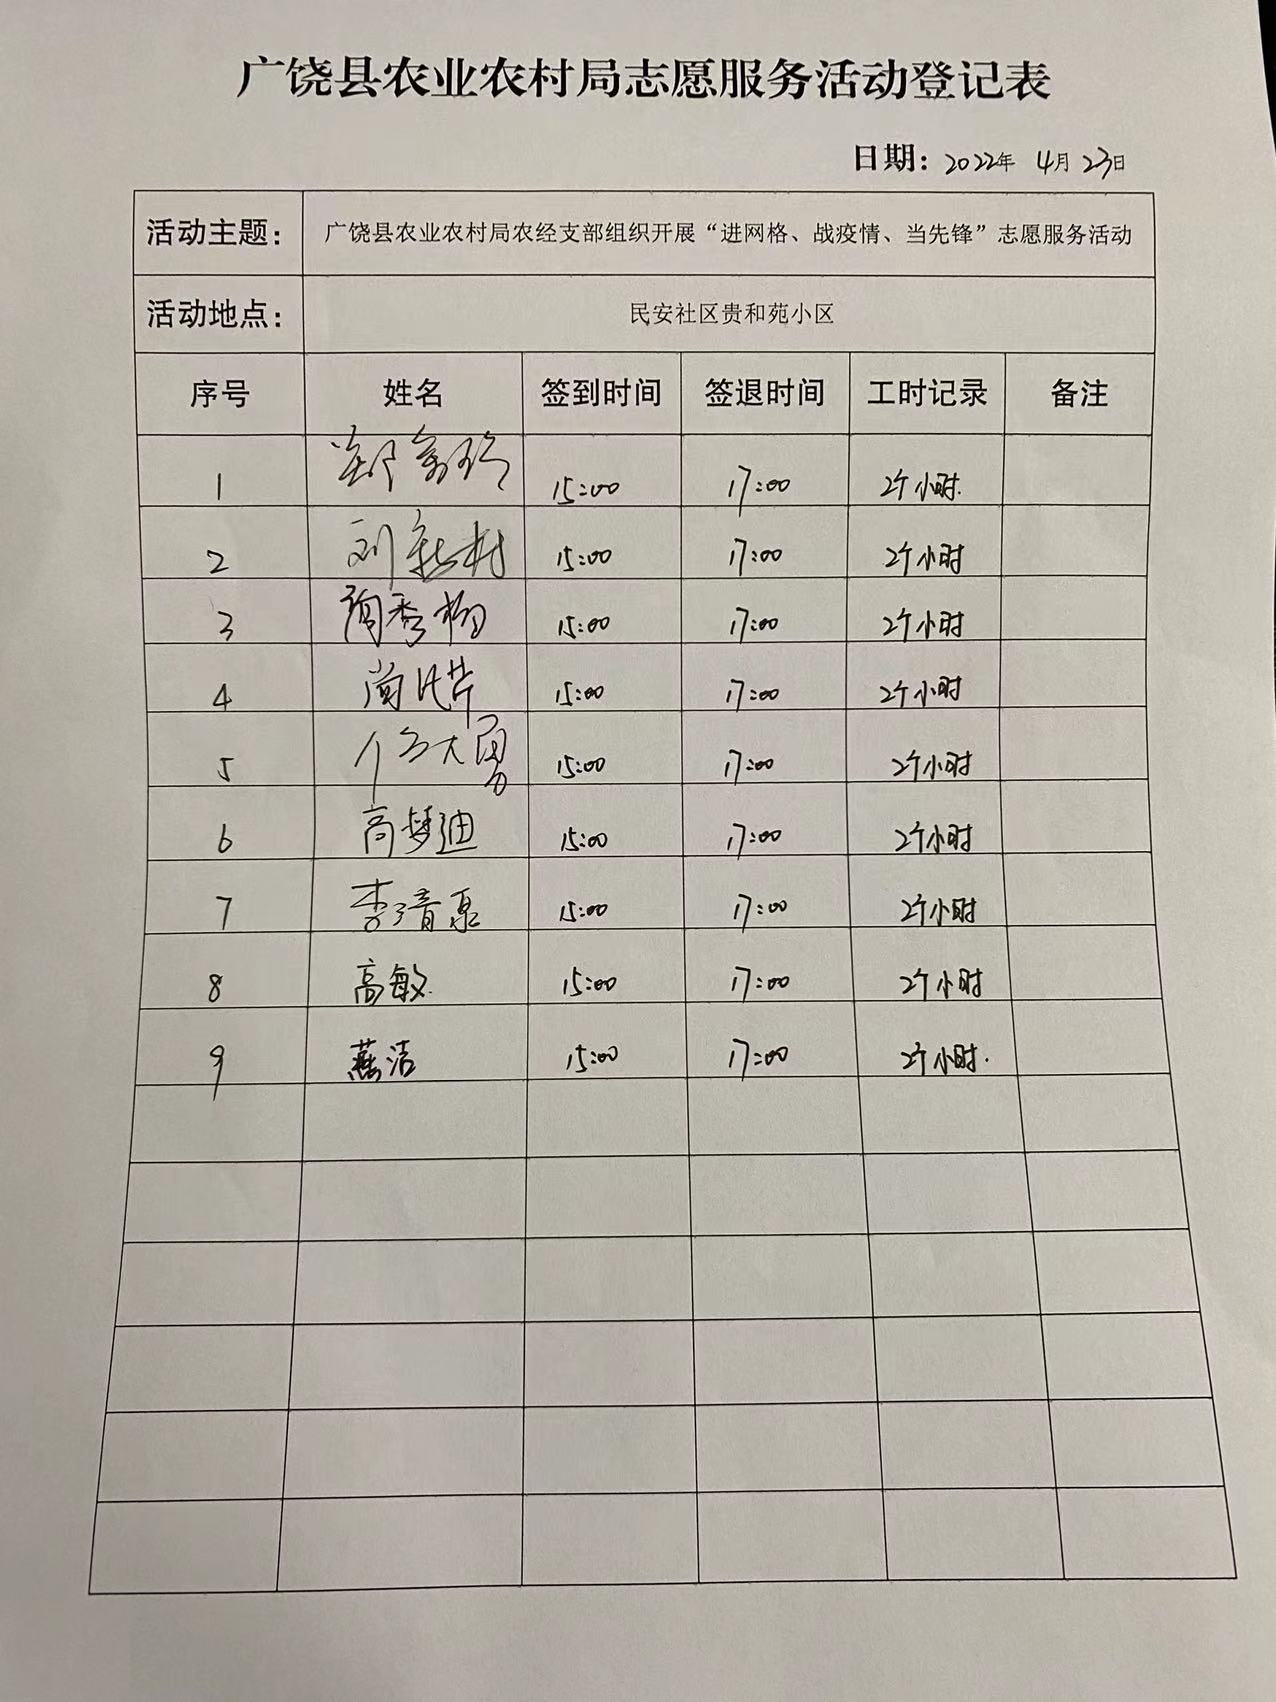 广饶县农业农村局志愿服务活动登记表
日期: 2022年 4月23日
活动主题: 广饶县农业农村局农经支部组织开展“进网格、战疫情、当先锋”志愿服务活动
活动地点: 民安社区贵和苑小区
序号 姓名 签到时间 签退时间 工时记录 备注
1 15:00 17:00 2个小时.
2 15:00 17:00 2个小时
3 15:00 17:00 2个小时
4 15:00 17:00 2个小时
5 15:00 17:00 2个小时
6 高梦迪 15:00 17:00 2个小时
7 李清泉 15:00 17:00 2个小时
8 高敏 15:00 17:00 2个小时
9 燕洁 15:00 17:00 2个小时.